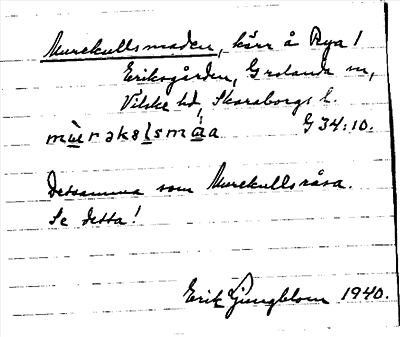 Murekullsmaden, kärr å Rya 1
Eriksgården, Grolanda sn,
Vilske hd, Skaraborgs l.
mu̲rəksl̲sma̲a G 34:10.
Detsamma som Murekullsråsa.
Se detta!
Erik Ljungblom 1940.